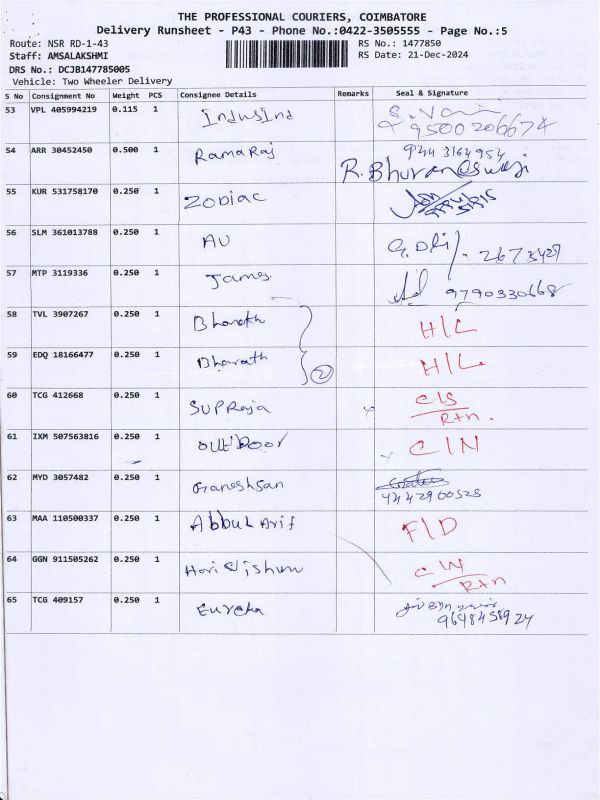 THE PROFESSIONAL COURIERS, COIMBATORE
Delivery Runsheet - P43 - Phone No.:0422-3505555 - Page No.:5
Route: NSR RD-1-43
RS No.: 1477850
Staff: AMSALAKSHMI
RS Date: 21-Dec-2024
DRS No.: DCJB147785005
Vehicle: Two Wheeler Delivery
S No Consignment No Weight PCS Consignee Details Remarks Seal & Signature
53 VPL 405994219 0.115 1 IndusInd
9500206674
54 ARR 30452450 0.500 1 RamaRaj 9244 3164954
R. Bhuvaneswaji
55 KUR 531758170 0.250 1 Zodiac
56 SLM 361013788 0.250 1 AU 2673427
57 MTP 3119336 0.250 1 James 9790330668
58 TVL 3907267 0.250 1 Bharath H/L
59 EDQ 18166477 0.250 1 Bharath 2 H/L
60 TCG 412668 0.250 1 SUPRaja C/S
Rtn.
61 IXM 507563816 0.250 1 OutDoor C/N
62 MYD 3057482 0.250 1 Ganeshsan
9442900528
63 MAA 110500337 0.250 1 Abbul Arif F/D
64 GGN 911505262 0.250 1 Hari Vishnu C/N
Rtn
65 TCG 409157 0.250 1 Eureka
9648458924